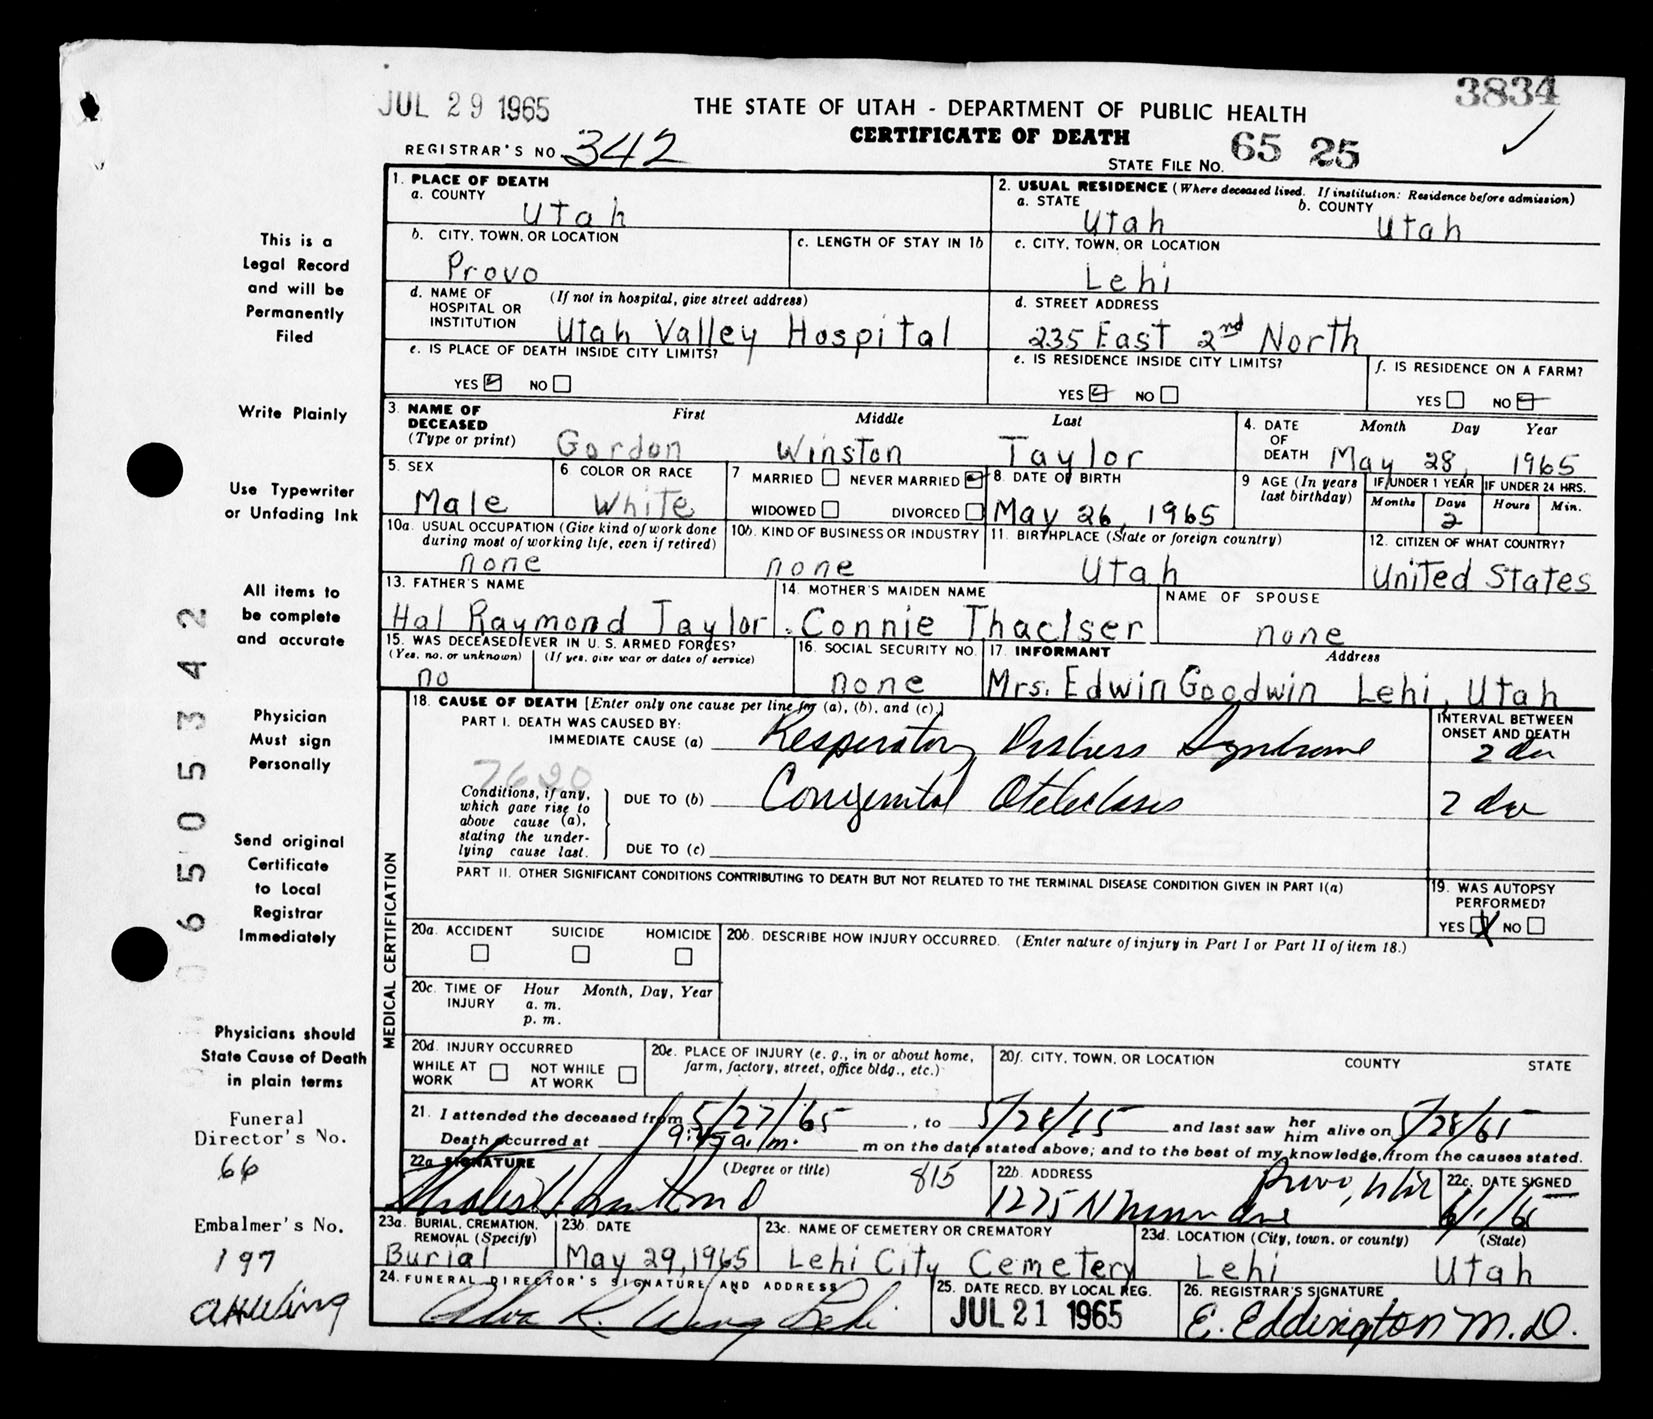 JUL 29 1965
THE STATE OF UTAH - DEPARTMENT OF PUBLIC HEALTH
3834
CERTIFICATE OF DEATH
REGISTRAR'S NO. 342
STATE FILE NO. 65 25
1. PLACE OF DEATH
a. COUNTY
Utah
2. USUAL RESIDENCE (Where deceased lived. If institution: Residence before admission)
a. STATE
Utah
b. COUNTY
Utah
b. CITY, TOWN, OR LOCATION
Provo
c. LENGTH OF STAY IN 1b
c. CITY, TOWN, OR LOCATION
Lehi
d. NAME OF HOSPITAL OR INSTITUTION
(If not in hospital, give street address)
Utah Valley Hospital
d. STREET ADDRESS
235 East 2nd North
e. IS PLACE OF DEATH INSIDE CITY LIMITS?
YES NO
e. IS RESIDENCE INSIDE CITY LIMITS?
YES NO
f. IS RESIDENCE ON A FARM?
YES NO
3. NAME OF DECEASED
(Type or print)
First Middle Last
Gordon Winston Taylor
4. DATE OF DEATH
Month Day Year
May 28, 1965
5. SEX
Male
6 COLOR OR RACE
White
7 MARRIED NEVER MARRIED
WIDOWED DIVORCED
8. DATE OF BIRTH
May 26, 1965
9 AGE (In years last birthday)
IF UNDER 1 YEAR
Months Days
2
IF UNDER 24 HRS.
Hours Min.
10a. USUAL OCCUPATION (Give kind of work done during most of working life, even if retired)
none
10b. KIND OF BUSINESS OR INDUSTRY
none
11. BIRTHPLACE (State or foreign country)
Utah
12. CITIZEN OF WHAT COUNTRY?
United States
13. FATHER'S NAME
Hal Raymond Taylor
14. MOTHER'S MAIDEN NAME
Connie Thaelser
NAME OF SPOUSE
none
15. WAS DECEASED EVER IN U. S. ARMED FORCES?
(Yes, no, or unknown) (If yes, give war or dates of service)
no
16. SOCIAL SECURITY NO.
none
17. INFORMANT Address
Mrs. Edwin Goodwin Lehi, Utah
MEDICAL CERTIFICATION
18. CAUSE OF DEATH [Enter only one cause per line for (a), (b), and (c).]
PART I. DEATH WAS CAUSED BY:
IMMEDIATE CAUSE (a) Respiratory Distress Syndrome
INTERVAL BETWEEN ONSET AND DEATH
2 da
7620
Conditions, if any, which gave rise to above cause (a), stating the underlying cause last.
DUE TO (b) Congenital Atelectasis
2 da
DUE TO (c)
PART II. OTHER SIGNIFICANT CONDITIONS CONTRIBUTING TO DEATH BUT NOT RELATED TO THE TERMINAL DISEASE CONDITION GIVEN IN PART I(a)
19. WAS AUTOPSY PERFORMED?
YES X NO
20a. ACCIDENT SUICIDE HOMICIDE
20b. DESCRIBE HOW INJURY OCCURRED. (Enter nature of injury in Part I or Part II of item 18.)
20c. TIME OF INJURY
Hour Month, Day, Year
a. m.
p. m.
20d. INJURY OCCURRED
WHILE AT WORK NOT WHILE AT WORK
20e. PLACE OF INJURY (e. g., in or about home, farm, factory, street, office bldg., etc.)
20f. CITY, TOWN, OR LOCATION COUNTY STATE
21. I attended the deceased from 5/27/65, to 5/28/65 and last saw her him alive on 5/28/65
Death occurred at 9:45 a. m. m on the date stated above; and to the best of my knowledge, from the causes stated.
22a SIGNATURE (Degree or title)
815
22b. ADDRESS
1275 N
Provo, Utah
22c. DATE SIGNED
6/1/65
23a. BURIAL, CREMATION, REMOVAL (Specify)
Burial
23b. DATE
May 29, 1965
23c. NAME OF CEMETERY OR CREMATORY
Lehi City Cemetery
23d. LOCATION (City, town, or county) (State)
Lehi Utah
24. FUNERAL DIRECTOR'S SIGNATURE AND ADDRESS
Alva R. Wing Lehi
25. DATE RECD. BY LOCAL REG.
JUL 21 1965
26. REGISTRAR'S SIGNATURE
E. Eddington M.D.
This is a
Legal Record
and will be
Permanently
Filed
Write Plainly
Use Typewriter
or Unfading Ink
All items to
be complete
and accurate
Physician
Must sign
Personally
Send original
Certificate
to Local
Registrar
Immediately
Physicians should
State Cause of Death
in plain terms
Funeral
Director's No.
66
Embalmer's No.
197
6505342